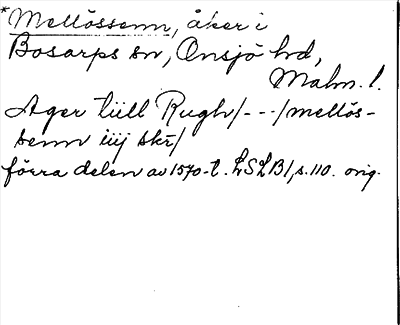 *Mellössenn, åker i
Bosarps sn, Onsjö hd,
Malm. l.
Ager tiill Rugh/---/mellös-
senn iiij skr/
förra delen av 1570-t. LSLB1, s. 110. orig.